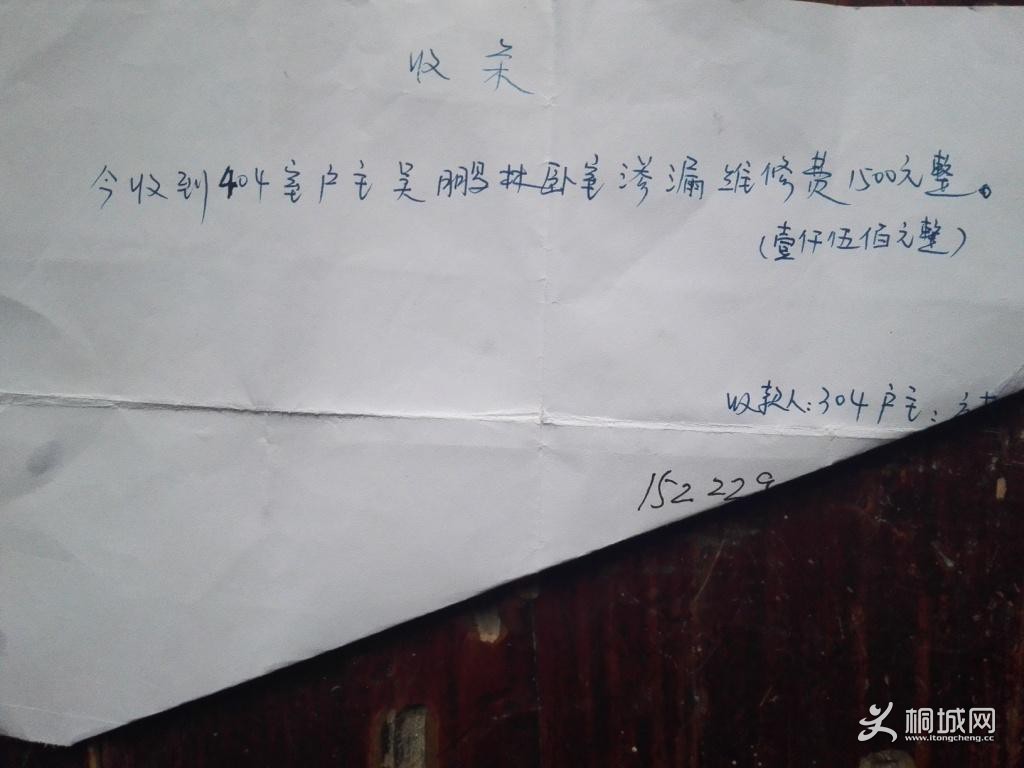 收条
今收到404室户主吴鹏林卧室渗漏维修费1500元整。
(壹仟伍佰元整)
收款人:304户主:
152229
桐城网
www.itongcheng.cc